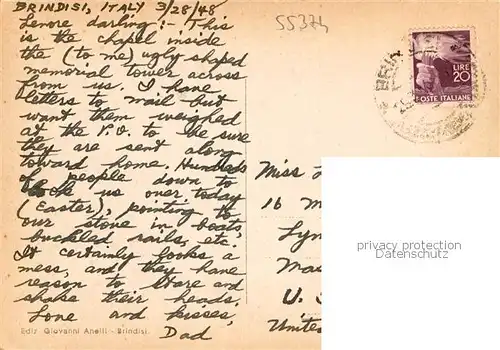 BRINDISI, ITALY 3/28/48
Lenore darling:- This
is the chapel inside
the (to me) ugly shaped
memorial tower across
from us. I have
letters to mail but
want them weighed
at the P.O. to be sure
they are sent along
toward home. Hundreds
of people down to
look us over today
(Easter), pointing to
our stove in boats,
buckled rails, etc.
It certainly looks a
mess, and they have
reason to stare and
shake their heads.
Love and kisses,
Dad
Ediz Giovanni Anelli - Brindisi
55374
BRIN
LIRE
20
POSTE ITALIANE
Miss
16 M
Lyn
Mas
U. S
United
privacy protection
Datenschutz